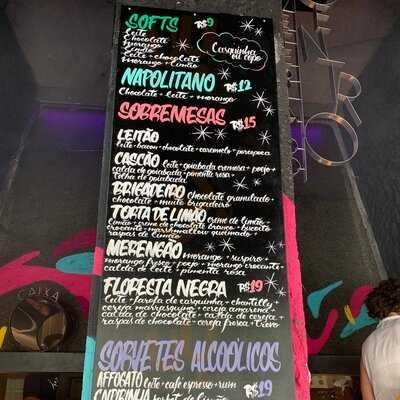 SOFTS R$9
Leite
Chocolate
morango
Limão
Leite + chocolate
morango + Limão
Casquinha
ou copo
NAPOLITANO R$12
Chocolate + leite + morango
SOBREMESAS R$15
LEITÃO
leite + bacon + chocolate + caramelo + pururuca
CASCÃO leite + goiabada cremosa + poejo +
calda de goiabada + pimenta rosa +
folha de goiabada
BRIGADEIRO chocolate granulado +
chocolate + muito brigadeiro
TORTA DE LIMÃO creme de limão
Limão + creme de chocolate branco + biscoito
crocante + marshmallow queimado +
raspas de limão
MERENGÃO morango + suspiro +
morango fresco + poejo + morango crocante +
calda de leite + pimenta rosa
FLORESTA NEGRA R$19
leite + farofa de casquinha + chantilly +
cereja marrasquino + cereja amarena +
calda de chocolate + calda de cereja +
raspas de chocolate + cereja fresca + trevo
SORVETES ALCOÓLICOS
AFFOGATO leite + café espresso + rum R$19
CAIPIRINHA sorbet de limão
CAIXA